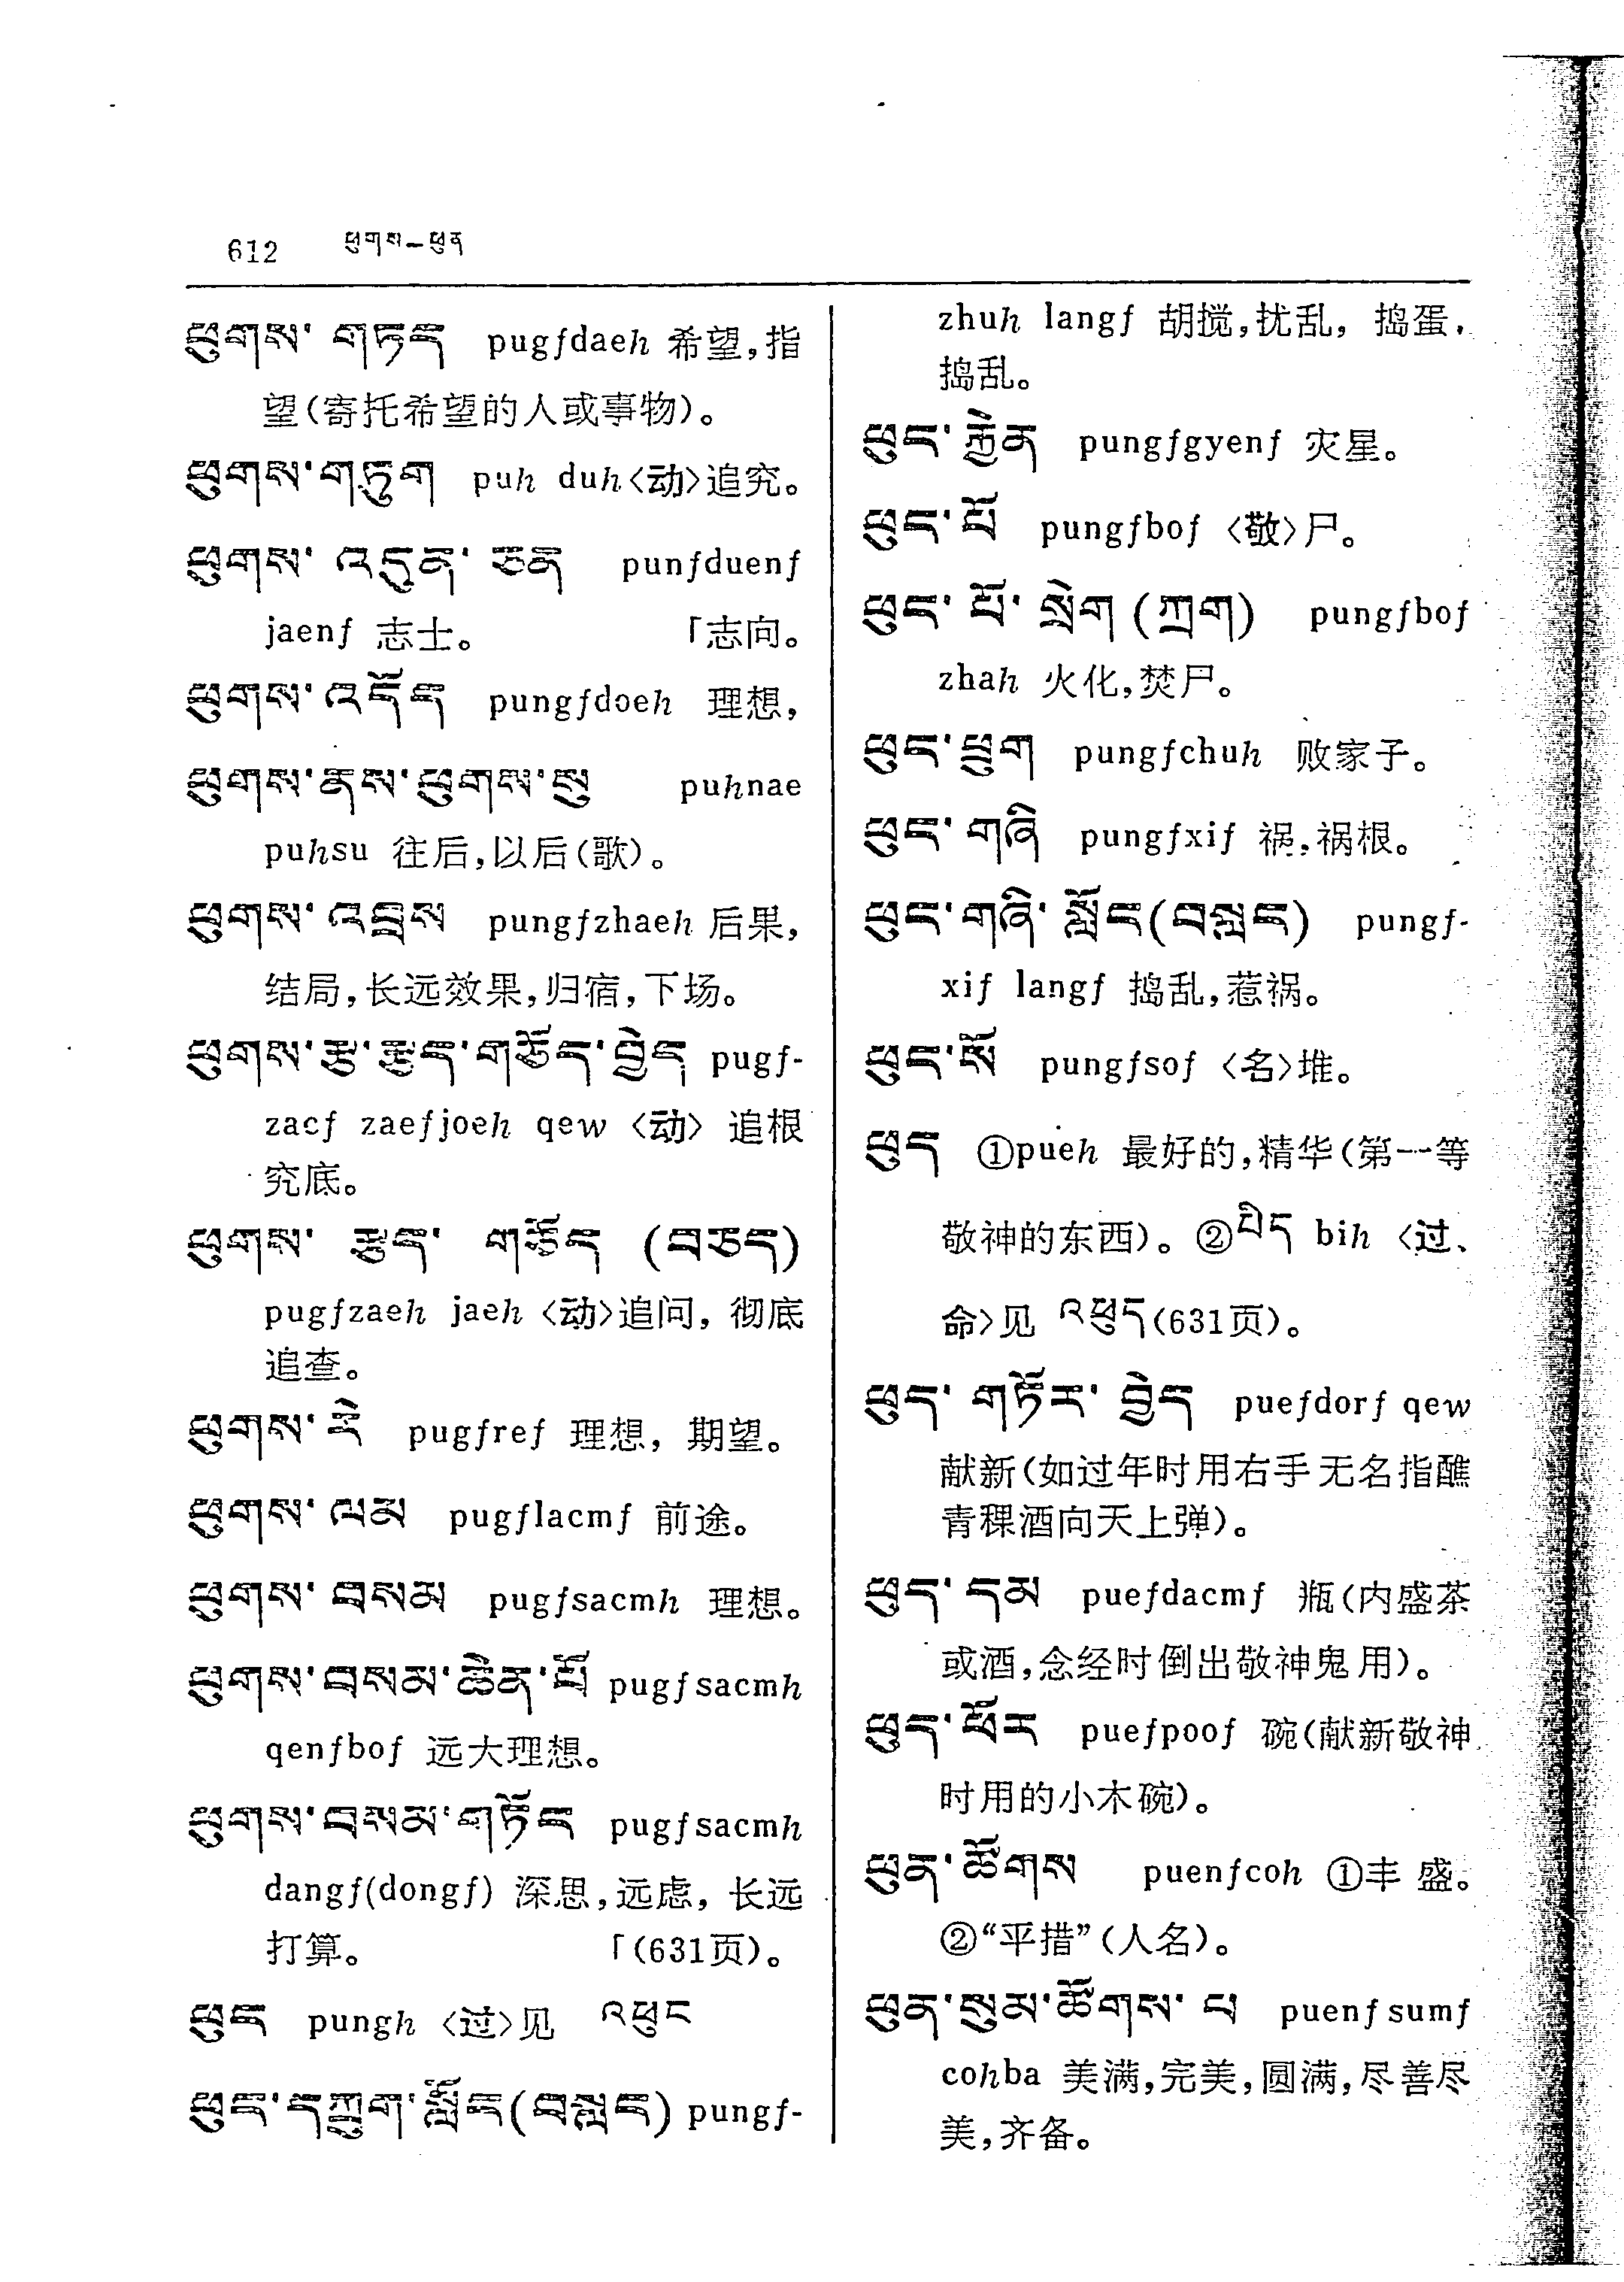 612 ཕུགས—ཕུན
ཕུགས་ གཏད pugfdaeh 希望,指
望(寄托希望的人或事物)。
ཕུགས་གཏུག puh duh〈动〉追究。
ཕུགས་ འདུན་ ཅན punfduenf
jaenf 志士。 「志向。
ཕུགས་འདོད pungfdoeh 理想,
ཕུགས་ནས་ཕུགས་སུ puhnae
puhsu 往后,以后(歌)。
ཕུགས་འབྲས pungfzhaeh 后果,
结局,长远效果,归宿,下场。
ཕུགས་རྩ་རྩད་གཅོད་བྱེད pugf-
zacf zaefjoeh qew 〈动〉 追根
究底。
ཕུགས་ རྩད་ གཅོད (བཅད)
pugfzaeh jaeh 〈动〉追问, 彻底
追查。
ཕུགས་ རེ pugfref 理想, 期望。
ཕུགས་ ལམ pugflacmf 前途。
ཕུགས་ བསམ pugfsacmh 理想。
ཕུགས་བསམ་ཆེན་པོ pugfsacmh
qenfbof 远大理想。
ཕུགས་བསམ་གཏོང pugfsacmh
dangf(dongf) 深思,远虑, 长远
打算。 「(631页)。
ཕུང pungh 〈过〉见 འཕུང
ཕུང་དཀྲུག་སློང(བསླང) pungf-
zhuh langf 胡搅,扰乱, 捣蛋,
捣乱。
ཕུང་ རྐྱེན pungfgyenf 灾星。
ཕུང་ པོ pungfbof 〈敬〉尸。
ཕུང་ པོ་ སྲེག (ཀྲག) pungfbof
zhah 火化,焚尸。
ཕུང་ཕྲུག pungfchuh 败家子。
ཕུང་ གཞི pungfxif 祸,祸根。
ཕུང་གཞི་ སློང(བསླང) pungf-
xif langf 捣乱,惹祸。
ཕུང་སོ pungfsof 〈名〉堆。
ཕུད ①pueh 最好的,精华(第一等
敬神的东西)。②པིད bih 〈过、
命〉见 འཕུད(631页)。
ཕུད་ གཏོར་ བྱེད puefdorf qew
献新(如过年时用右手无名指醮
青稞酒向天上弹)。
ཕུད་ དམ puefdacmf 瓶(内盛茶
或酒,念经时倒出敬神鬼用)。
ཕུད་ཕོར puefpoof 碗(献新敬神
时用的小木碗)。
ཕུན་ཚོགས puenfcoh ①丰盛。
②“平措”(人名)。
ཕུན་སུམ་ཚོགས་ པ puenfsumf
cohba 美满,完美,圆满,尽善尽
美,齐备。